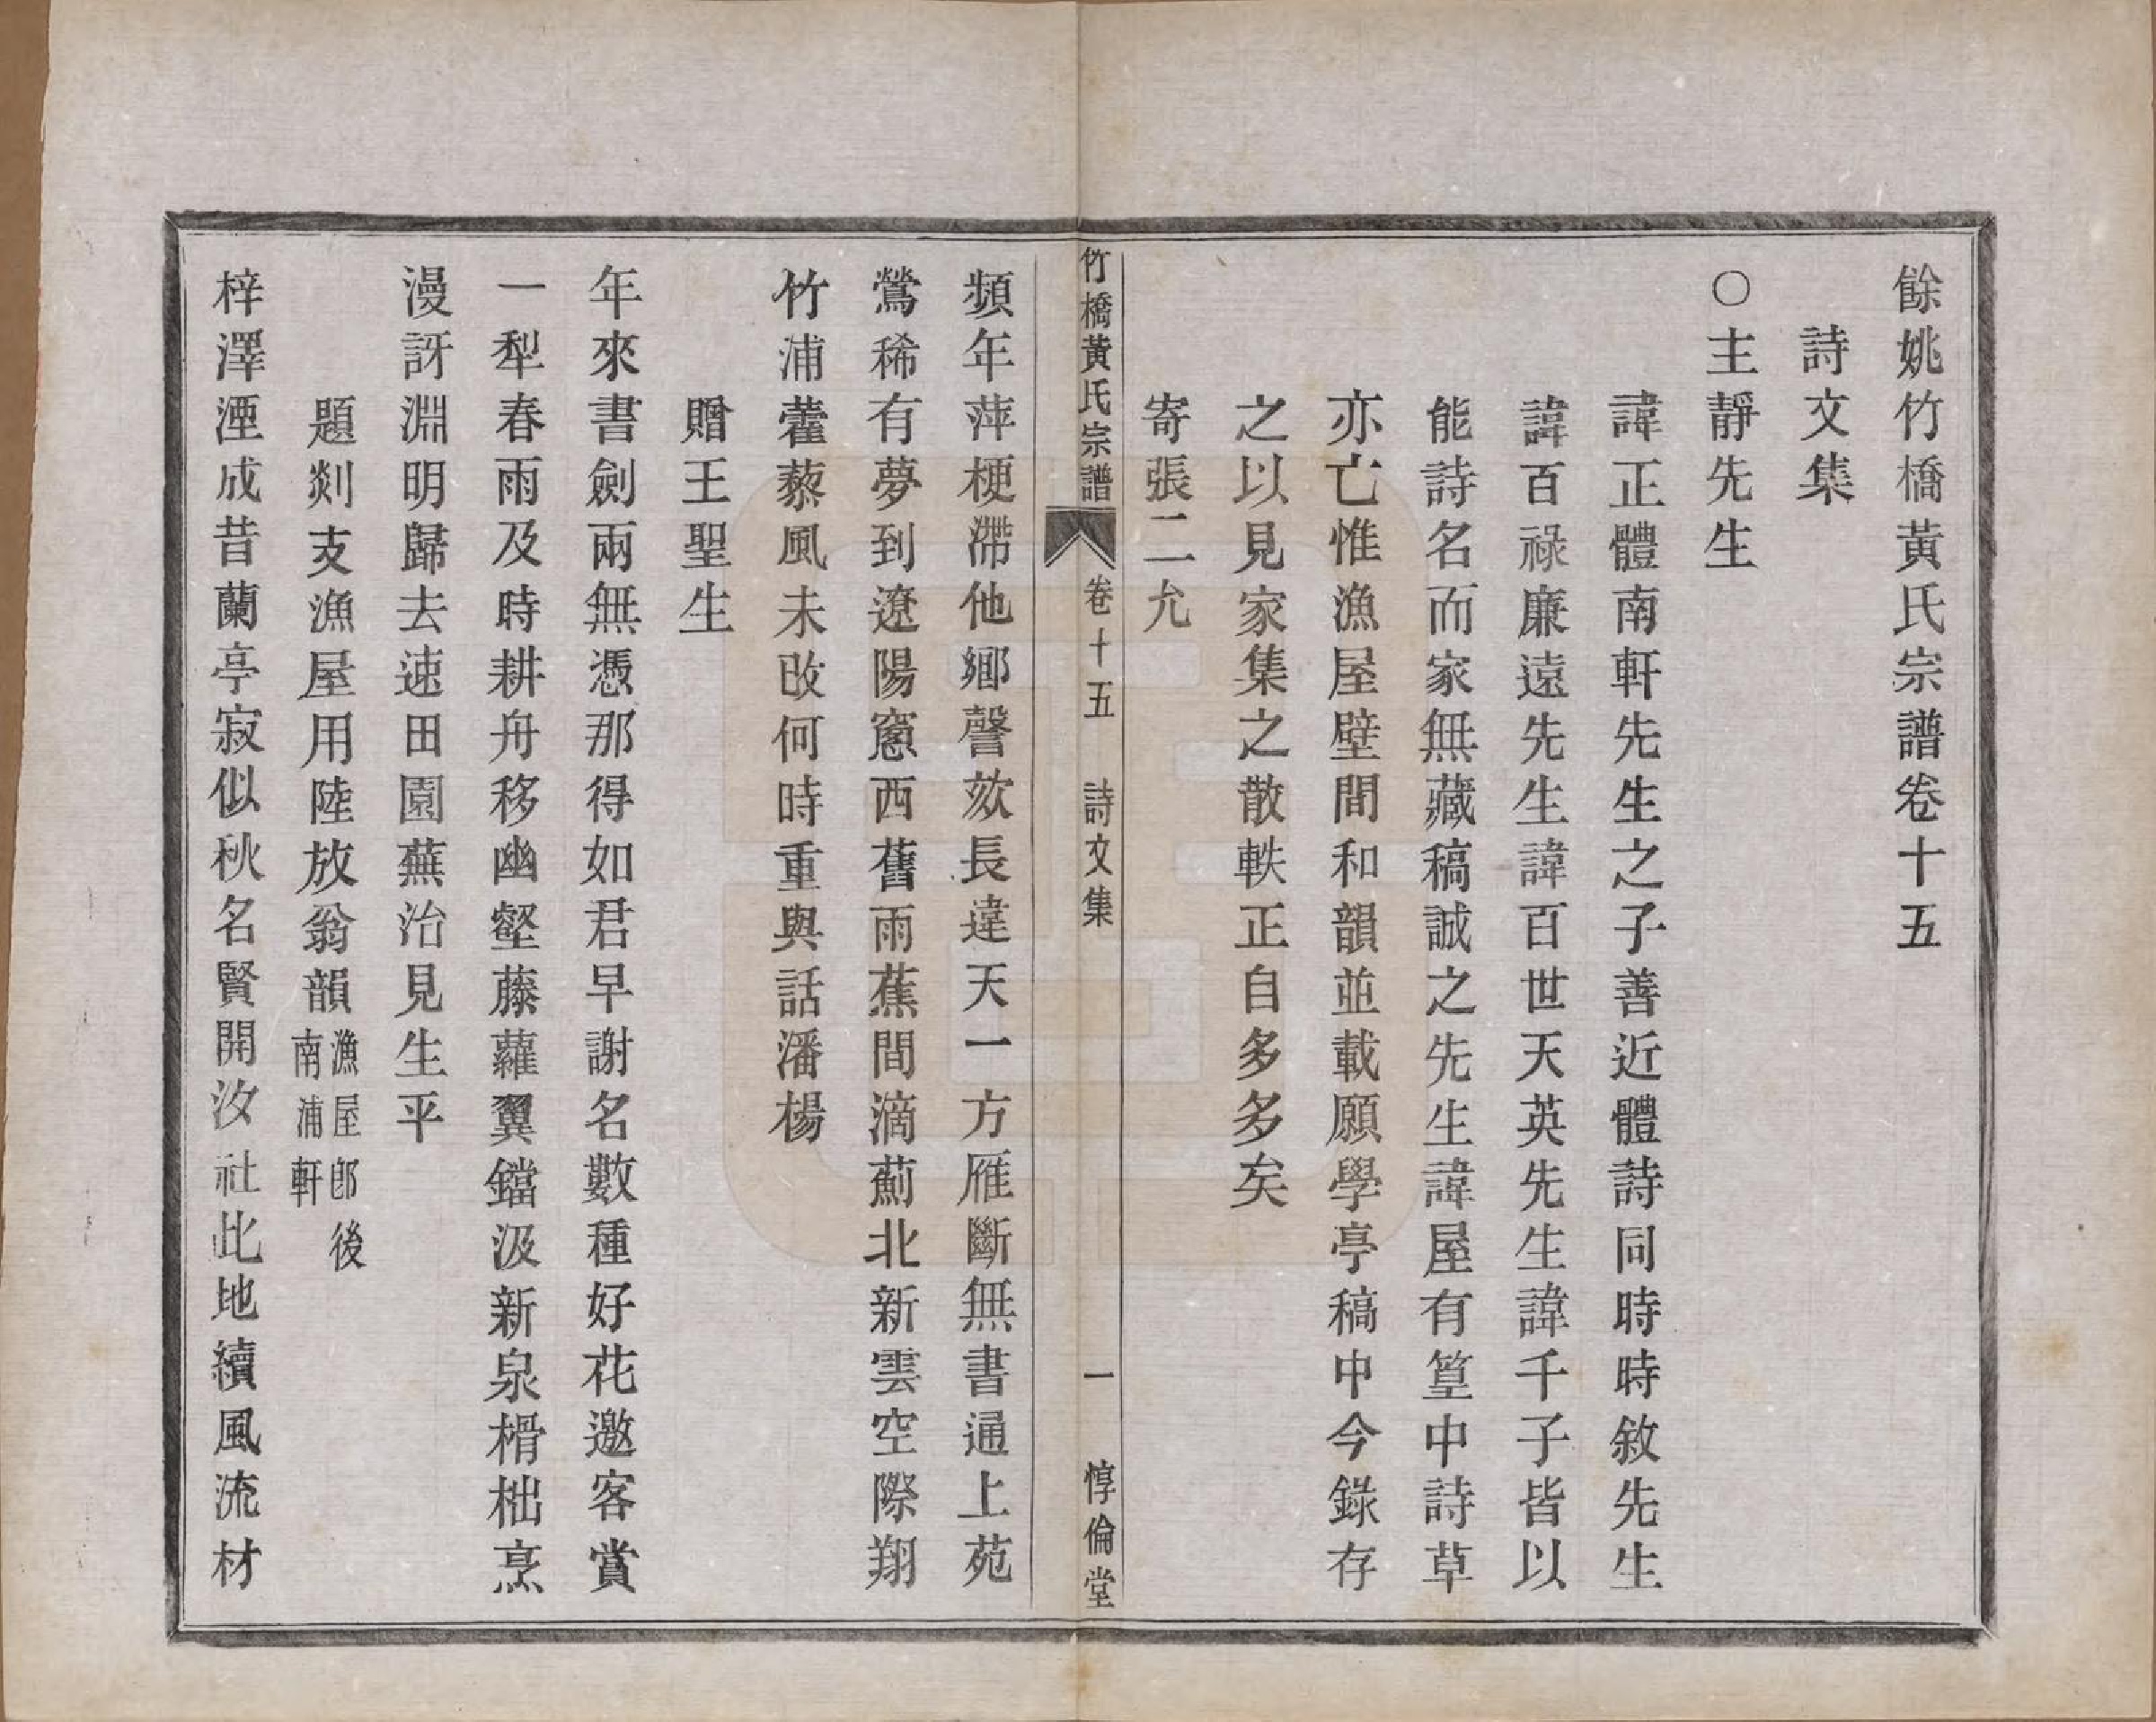 餘姚竹橋黃氏宗譜卷十五
詩文集
○主靜先生
諱正體南軒先生之子善近體詩同時時敘先生
諱百祿廉遠先生諱百世天英先生諱千子皆以
能詩名而家無藏稿誠之先生諱屋有篁中詩草
亦亡惟漁屋壁間和韻並載願學亭稿中今錄存
之以見家集之散軼正自多多矣
寄張二允
竹橋黃氏宗譜 卷十五 詩文集 一 惇倫堂
頻年萍梗滯他鄉謦欬長違天一方雁斷無書通上苑
鶯稀有夢到遼陽窻西舊雨蕉間滴薊北新雲空際翔
竹浦藿藜風未改何時重與話潘楊
贈王聖生
年來書劍兩無憑那得如君早謝名數種好花邀客賞
一犁春雨及時耕舟移幽壑藤蘿翼鐺汲新泉榾柮烹
漫訝淵明歸去速田園蕪治見生平
題剡支漁屋用陸放翁韻漁屋郎後南浦軒
梓澤湮成昔蘭亭寂似秋名賢開汝社此地續風流材